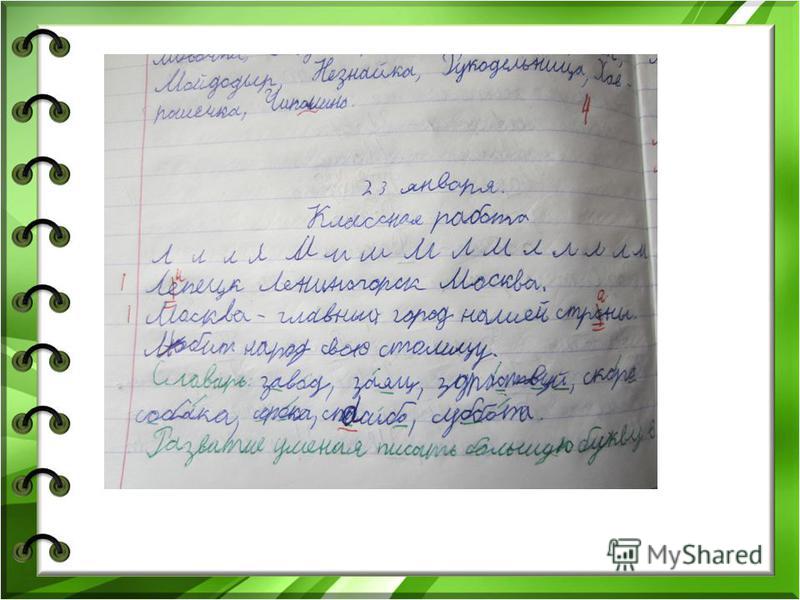 Мойдодыр, Незнайка, Рукодельница, Хав-
рошечка, Чиполино.
4
23 января.
Классная работа
Лепецк Лениногорск Москва.
и
Москва - главный город нашей страны.
а
Любит народ свою столицу.
Словарь: завод, заяц, здравствуй, скоро
собака, сорока, спасибо, суббота.
Развитие умения писать большую букву в
MyShared